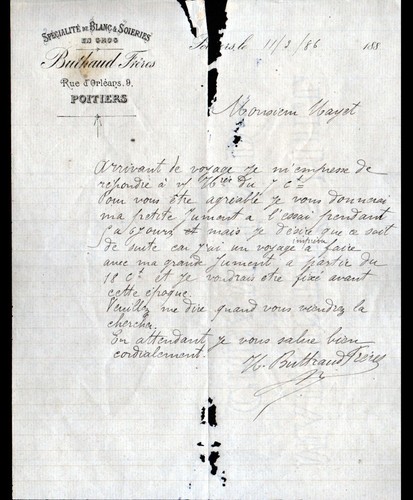 SPÉCIALITÉ DE BLANC & SOIERIES
EN GROS
Buthaud Frères
Rue d'Orléans, 9,
POITIERS
le 11/3/86 188
Monsieur Mayet
Arrivant de voyage je m'empresse de
répondre à v/ du 7 Ct
Pour vous être agréable je vous donnerai
ma petite jument a l'essai pendant
5 a 6 jours mais je désire que ce soit
de suite car j'ai un voyage a faire
avec ma grande jument a partir du
18 Ct et je voudrais être fixé avant
cette époque
Veuillez me dire quand vous viendrez la
chercher.
En attendant je vous salue bien
cordialement.
H. Buthaud Frères